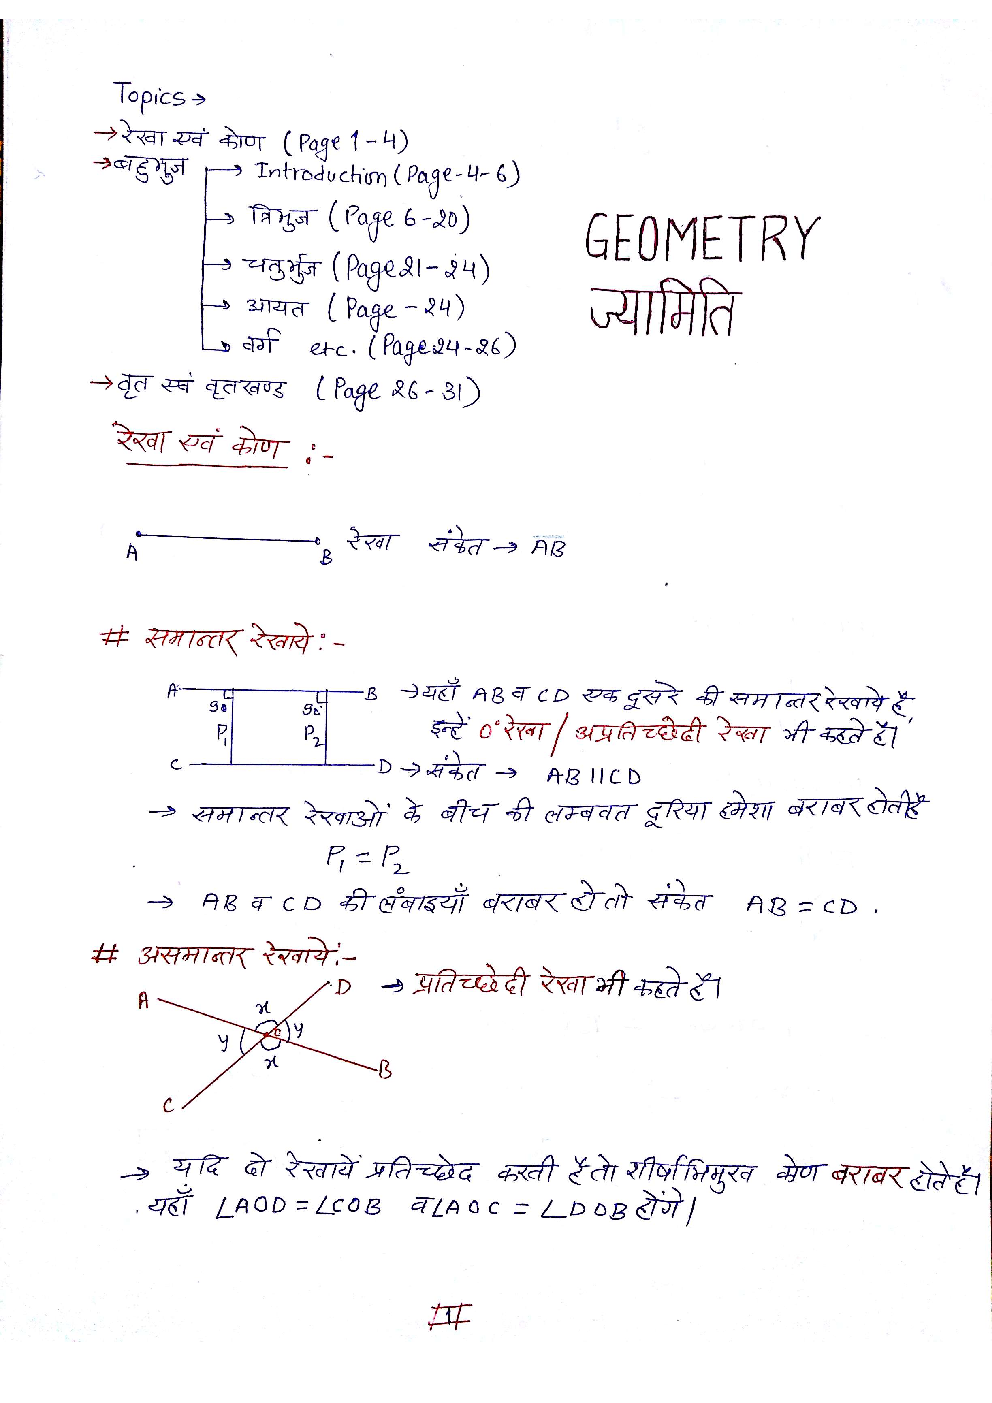 Topics →
→ रेखा एवं कोण (Page 1-4)
→ बहुभुज → Introduction (Page-4-6)
→ त्रिभुज (Page 6-20)
→ चतुर्भुज (Page 21-24)
→ आयत (Page - 24)
→ वर्ग etc. (Page 24-26)
→ वृत एवं वृतखण्ड (Page 26-31)
GEOMETRY
ज्यामिति
रेखा एवं कोण :-
A B रेखा संकेत → AB
# समान्तर रेखाये :-
A B → यहाँ AB व CD एक दूसरे की समान्तर रेखाये है,
90° 90°
P₁ P₂ इन्हें 0° रेखा / अप्रतिच्छेदी रेखा भी कहते है।
C D → संकेत → AB || CD
→ समान्तर रेखाओं के बीच की लम्बवत दूरिया हमेशा बराबर होती है
P₁ = P₂
→ AB व CD की लंबाइयाँ बराबर हो तो संकेत AB = CD .
# असमान्तर रेखाये:-
A D → प्रतिच्छेदी रेखा भी कहते हैं।
x
y y
x
B
C
→ यदि दो रेखायें प्रतिच्छेद करती है तो शीर्षाभिमुख कोण बराबर होते है।
यहाँ ∠AOD = ∠COB व ∠AOC = ∠DOB होंगे।